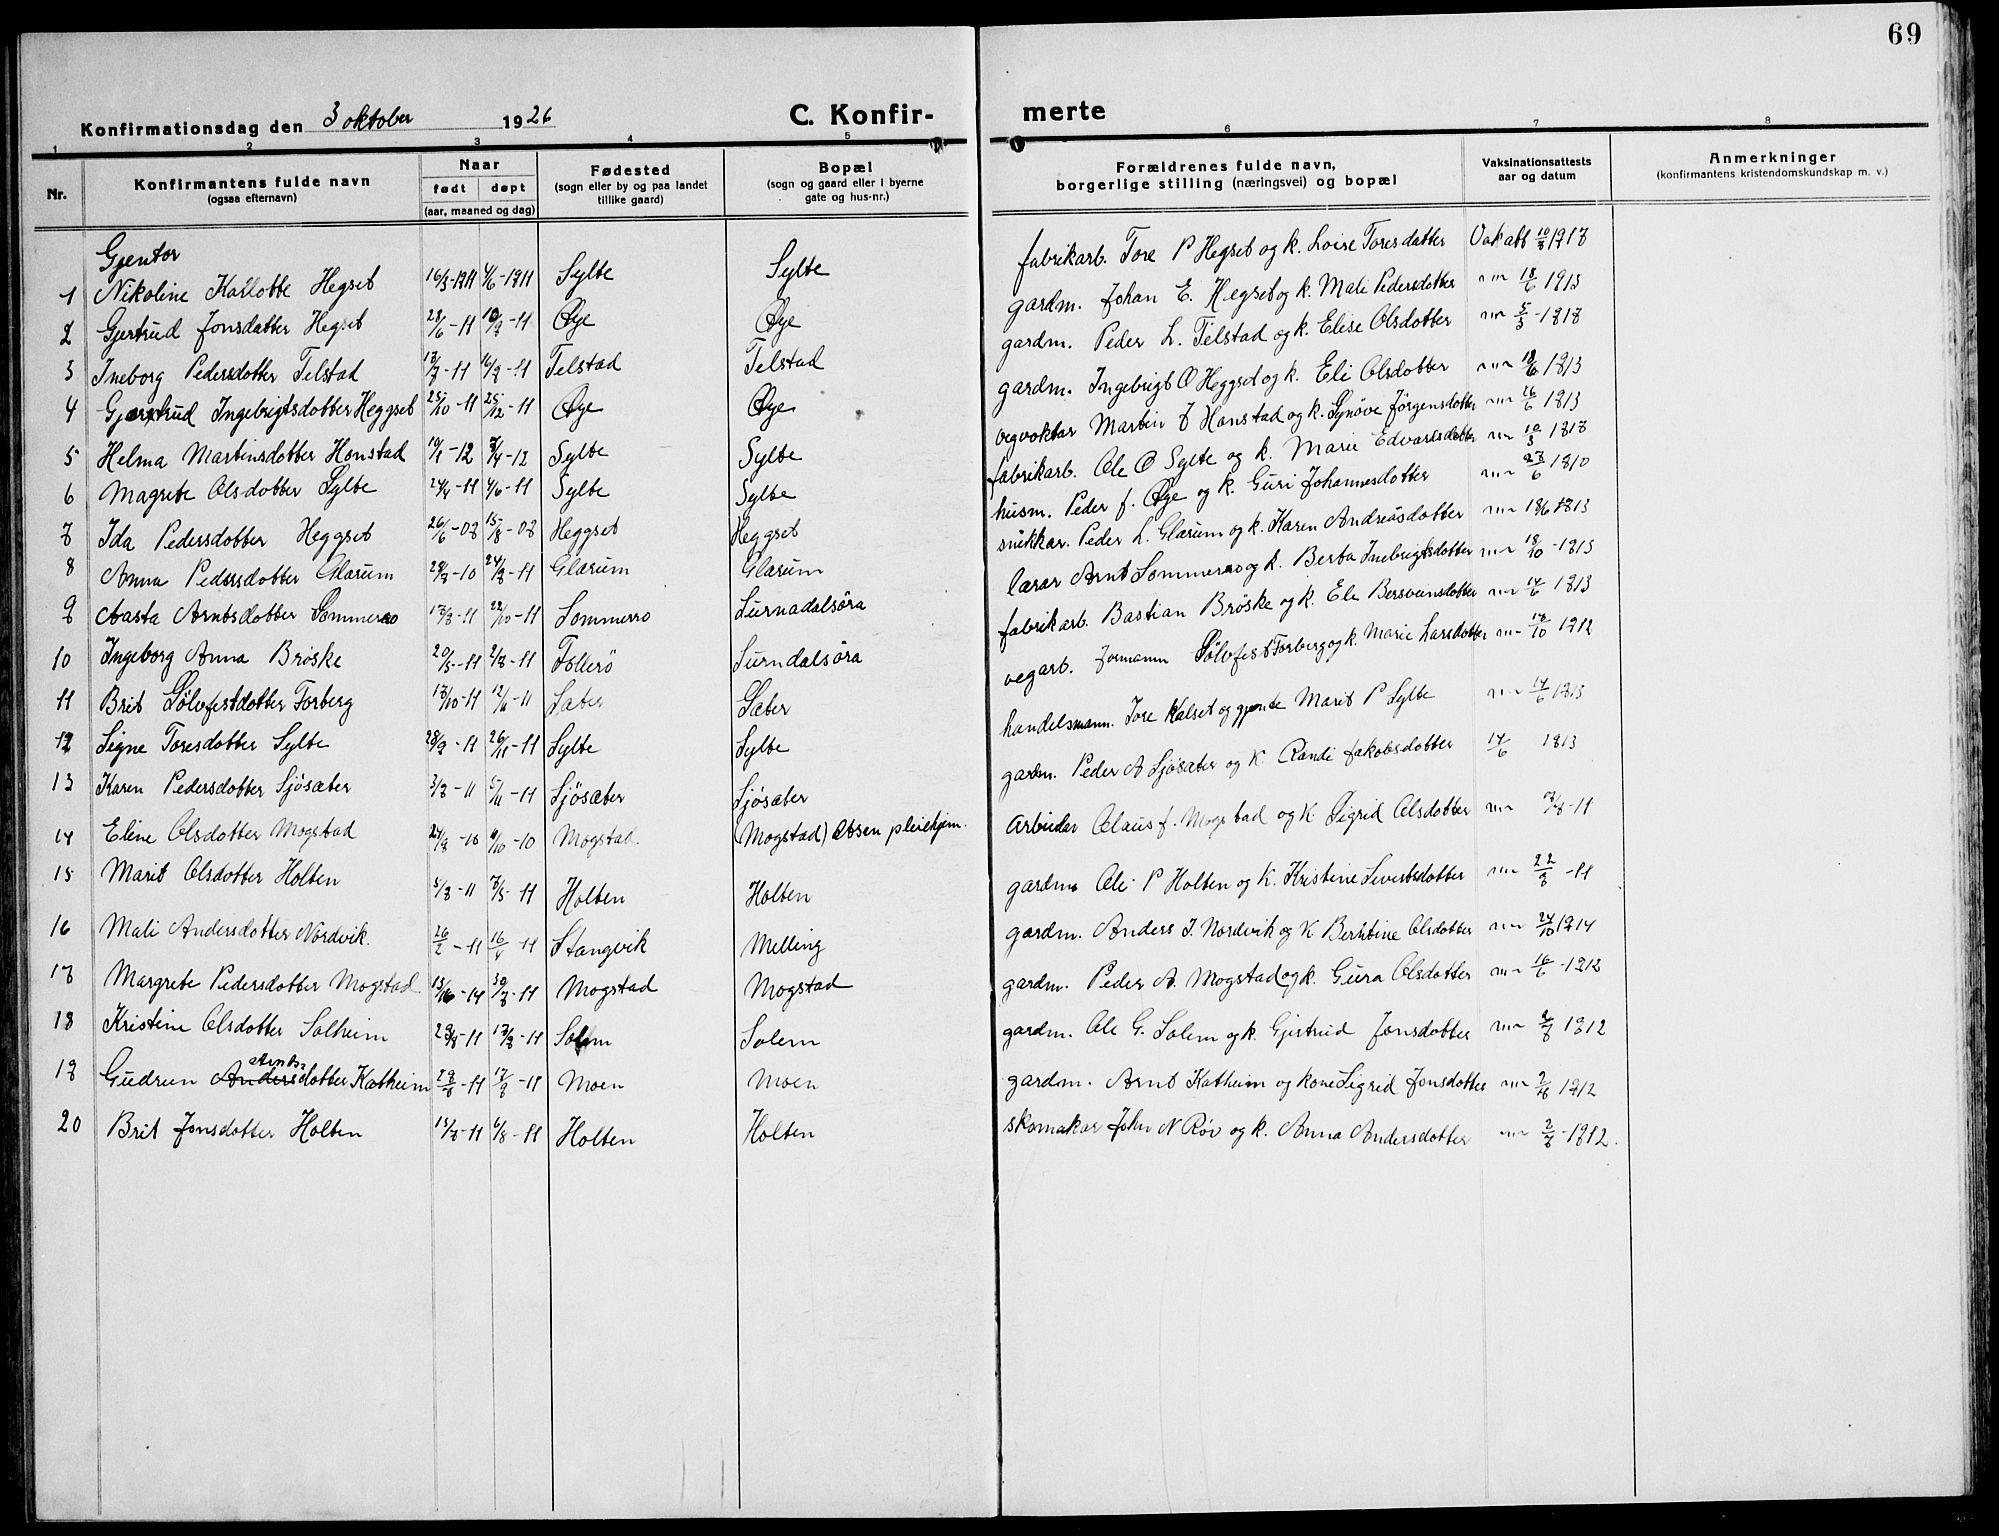 69
Konfirmationsdag den 3 oktober 1926 C. Konfir- merte
1 2 3 4 5 6 7 8
Nr. Konfirmantens fulde navn (ogsaa efternavn) Naar født døpt (aar, maaned og dag) Fødested (sogn eller by og paa landet tillike gaard) Bopæl (sogn og gaard eller i byerne gate og hus-nr.) Forældrenes fulde navn, borgerlige stilling (næringsvei) og bopæl Vaksinationsattests aar og datum Anmerkninger (konfirmantens kristendomskundskap m. v.)
Gjentor
1 Nikoline Karlotte Hegset 16/3-1911 4/6-1911 Sylte Sylte fabrikarb. Tore P Hegset og k. Loise Toresdatter Vakatt
2 Gjertrud Jonsdatter Hegset 28/6-11 Øye Øye gardm. Johan E. Hegset og k. Mali Pedersdotter 18/6 1913
3 Ineborg Pedersdotter Telstad Telstad Telstad gardm. Peder L. Telstad og k. Elise Olsdotter
4 Gjertrud Ingebrigtsdotter Heggset 25/10-11 25/12-11 Øye Øye gardm. Ingebrigt O Heggset og k. Eli Olsdotter
5 Helma Martinsdotter Honstad Sylte Sylte vegvoktar Martin J Honstad og k. Synøve Jørgensdotter 26/6 1913
6 Magrete Olsdotter Sylte 4/6-11 Sylte Sylte fabrikarb. Ole O Sylte og k. Marie Edvardsdotter
7 Ida Pedersdotter Heggset 26/6-07 15/8-07 Heggset Heggset husm. Peder J. Øye og k. Guri Johannesdotter
8 Anna Pedersdotter Glærum Glærum Glærum snikkar. Peder L. Glærum og k. Karen Andreasdotter
9 Aasta Arntsdotter Sommerro 22/10-11 Sommerro Surnadalsøra lærar Arnt Sommerro og k. Berta Inebrigtsdotter
10 Ingeborg Anna Brøske 20/5-11 Follerö Surndalsøra fabrikarb. Bastian Brøske og k. Eli Bersveinsdotter 14/6 1913
11 Brit Sölvfestdotter Torberg Sæter Sæter vegarb. formann Sølvfest Torberg og k. Marie Larsdotter 1912
12 Signe Toresdotter Sylte 28/9-11 26/11-11 Sylte Sylte handelsmann. Tore Kalset og gjente Marit P Sylte 14/6 1913
13 Karen Pedersdotter Sjösæter 5/11-11 Sjösæter Sjösæter gardm. Peder A Sjösæter og K Randi Jakobsdotter 14/6 1913
14 Eline Olsdotter Mogstad Mogstad. (Mogstad) Øtsen pleiehjem. Arbeidar Olaus J. Mogstad og K Sigrid Olsdotter
15 Marit Olsdotter Holten Holten Holten gardm Ole P Holten og K. Kristine Sivertsdotter
16 Mali Andersdotter Nordvik. 26/2-11 16/4-11 Stangvik Melling gardm. Anders I. Nordvik og K Berhtine Olsdotter 24/10 1914
17 Margrete Pedersdotter Mogstad Mogstad Mogstad gardm. Peder A. Mogstad og k. Gura Olsdotter 16/6-1912
18 Kristine Olsdotter Solheim Solem Solem gardm. Ole G. Solem og k. Gjertrud Jonsdotter 1912
19 Gudrun Anders Arntsdotter Katheim Moen Moen gardm. Arnt Katheim og kone Sigrid Jonsdotter 1912
20 Brit Jonsdotter Holten 6/8-11 Holten Holten skomakar John N Røv og k. Anna Andersdotter 1912.